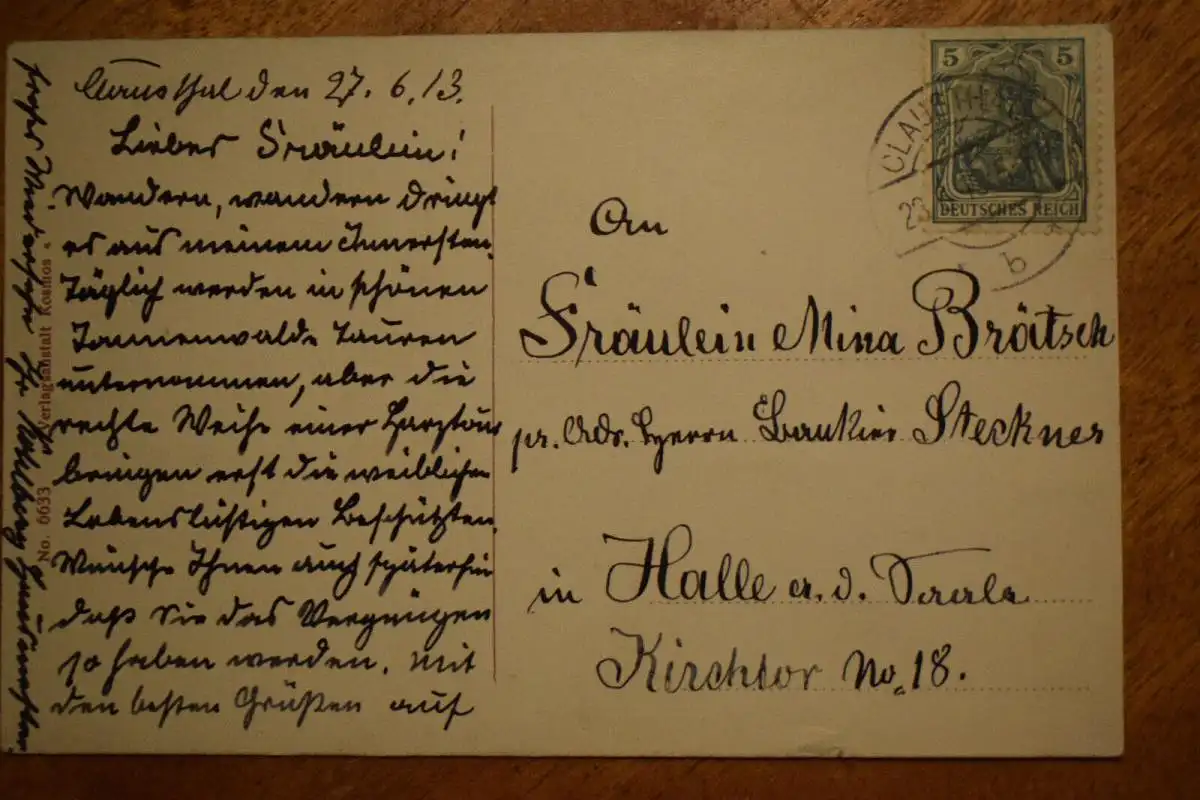 Clausthal den 27. 6. 13.
Liebes Fräulein!
Wandern, wandern dringt
es aus meinem Innersten.
Täglich werden in schönen
Tannenwalde Touren
unternommen, aber die
rechte Weihe einer Harztour
bringen erst die weiblichen
Lebenslustigen Beschützten.
Wünsche Ihnen auch späterhin
daß Sie das Vergnügen
so haben werden. Mit
den besten Grüßen auf
frohes Wiedersehn Ihr
No. 6633 Verlagsanstalt Kosmos
5 5
DEUTSCHES REICH
CLAUSTHAL
b
An
Fräulein Mina Brätsch
pr. Adr. Herrn Bankier Steckner
in Halle a. d. Saale
Kirchtor No. 18.